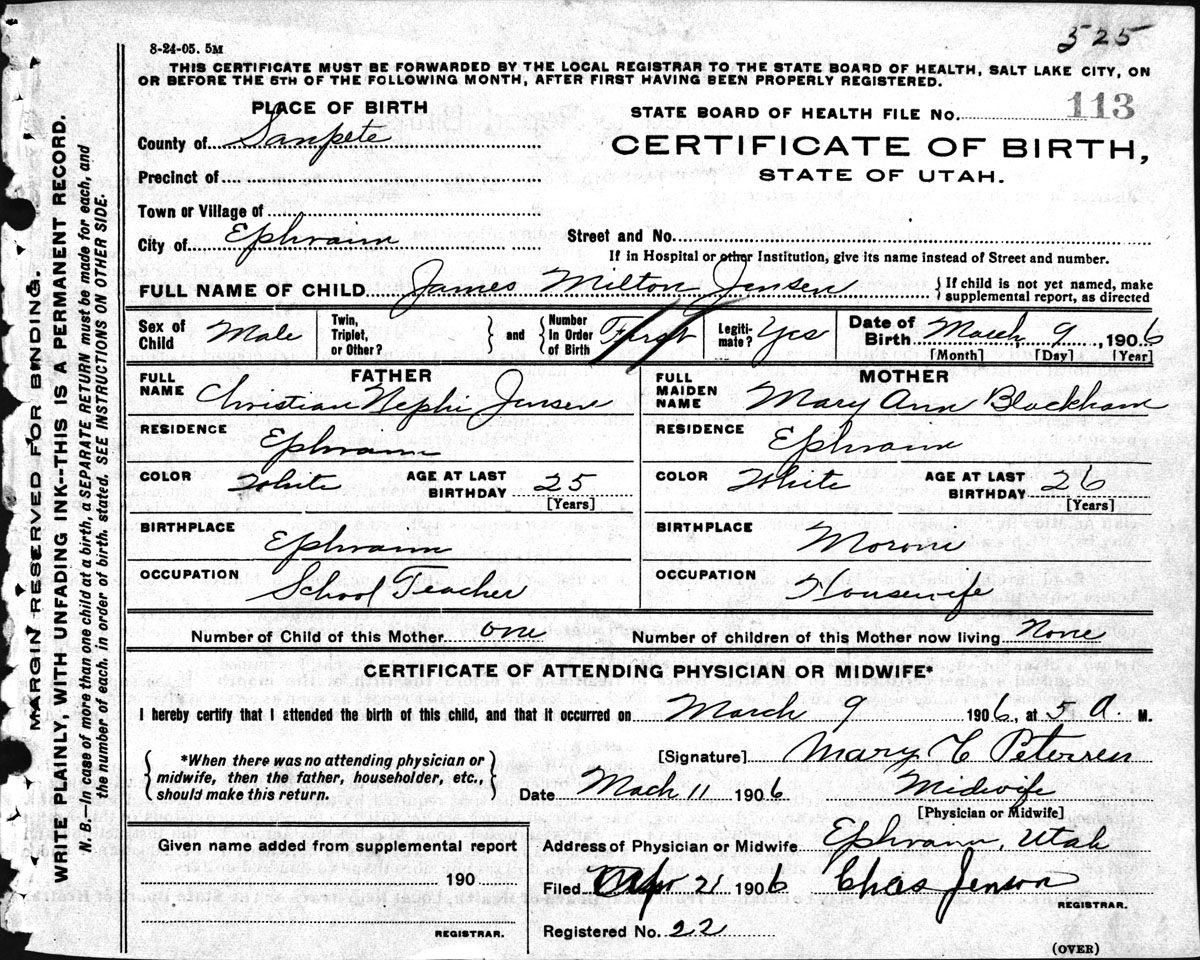 525
8-24-05. 5M
THIS CERTIFICATE MUST BE FORWARDED BY THE LOCAL REGISTRAR TO THE STATE BOARD OF HEALTH, SALT LAKE CITY, ON
OR BEFORE THE 5TH OF THE FOLLOWING MONTH, AFTER FIRST HAVING BEEN PROPERLY REGISTERED.
PLACE OF BIRTH
STATE BOARD OF HEALTH FILE No. 113
County of Sanpete
CERTIFICATE OF BIRTH,
STATE OF UTAH.
Precinct of
Town or Village of
City of Ephraim
Street and No.
If in Hospital or other Institution, give its name instead of Street and number.
FULL NAME OF CHILD James Milton Jensen { If child is not yet named, make
supplemental report, as directed
Sex of Child Male
Twin, Triplet, or Other? } and { Number In Order of Birth First
Legiti-mate? Yes
Date of Birth March 9, 1906
[Month] [Day] [Year]
FATHER
FULL NAME Christian Nephi Jensen
RESIDENCE Ephraim
COLOR White AGE AT LAST BIRTHDAY 25
[Years]
BIRTHPLACE Ephraim
OCCUPATION School Teacher
MOTHER
FULL MAIDEN NAME Mary Ann Blackham
RESIDENCE Ephraim
COLOR White AGE AT LAST BIRTHDAY 26
[Years]
BIRTHPLACE Moroni
OCCUPATION Housewife
Number of Child of this Mother one Number of children of this Mother now living None
CERTIFICATE OF ATTENDING PHYSICIAN OR MIDWIFE*
I hereby certify that I attended the birth of this child, and that it occurred on March 9 1906, at 5 A. M.
{ *When there was no attending physician or
midwife, then the father, householder, etc.,
should make this return. }
[Signature] Mary C Petersen
Date Mach 11 1906 Midwife
[Physician or Midwife]
Address of Physician or Midwife Ephraim, Utah
Filed Apr 21 1906 Chas Jenson
REGISTRAR.
Registered No. 22
Given name added from supplemental report
190
REGISTRAR.
(OVER)
MARGIN RESERVED FOR BINDING.
WRITE PLAINLY, WITH UNFADING INK--THIS IS A PERMANENT RECORD.
N. B.--In case of more than one child at a birth, a SEPARATE RETURN must be made for each, and
the number of each, in order of birth, stated. SEE INSTRUCTIONS ON OTHER SIDE.